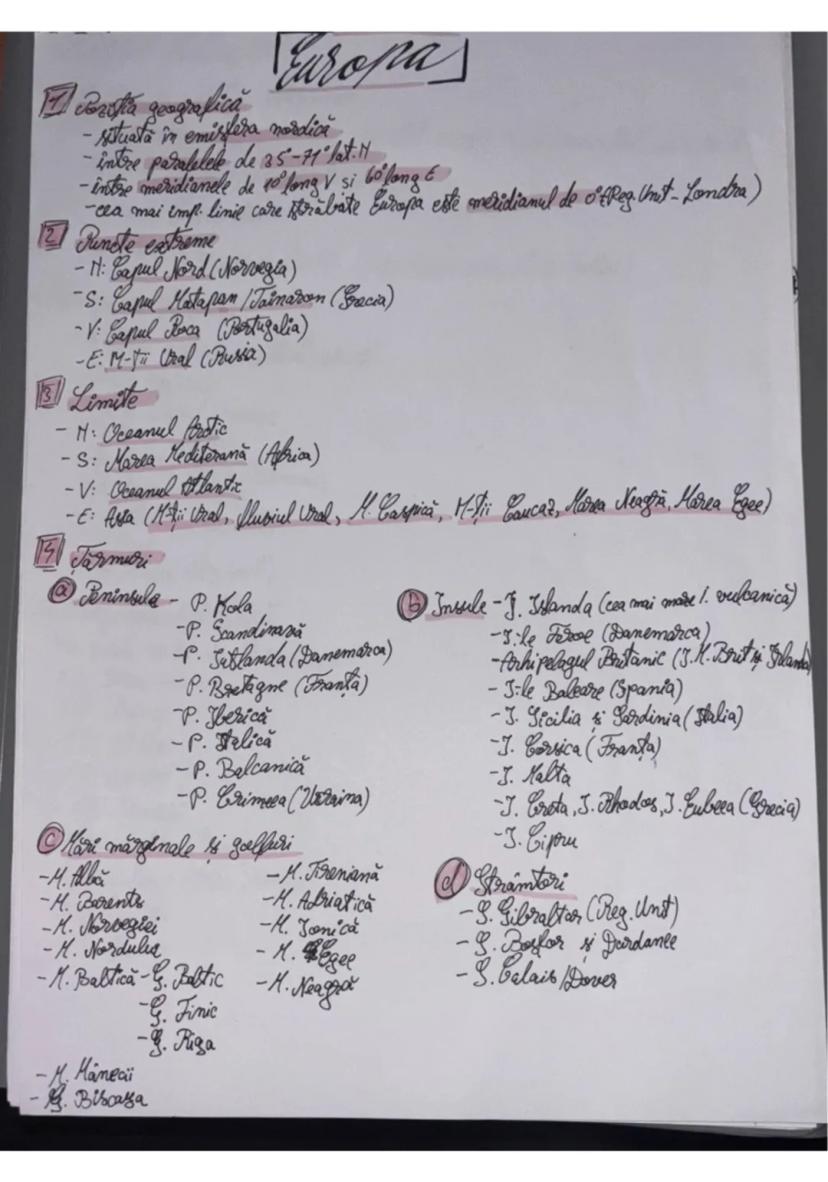 Europa
1 Poziția geografică
- situată în emisfera nordică
- între paralelele de 35°-71° lat. N
- între meridianele de 10° long V si 60° long E
- cea mai imp. linie care străbate Europa este meridianul de 0° (Reg. Unit - Londra)
2 Puncte extreme
- N: Capul Nord (Norvegia)
- S: Capul Matapan / Tainaron (Grecia)
- V: Capul Roca (Portugalia)
- E: M-ții Ural (Rusia)
3 Limite
- N: Oceanul Arctic
- S: Marea Mediterană (Africa)
- V: Oceanul Atlantic
- E: Asia (M-ții Ural, fluviul Ural, M. Caspică, M-ții Caucaz, Marea Neagră, Marea Egee)
4 Țărmuri
a Peninsule - P. Kola
- P. Scandinavă
- P. Iutlanda (Danemarca)
- P. Bretagne (Franța)
- P. Iberică
- P. Italică
- P. Balcanică
- P. Crimeea (Ucraina)
b Insule - I. Islanda (cea mai mare I. vulcanică)
- I-le Feroe (Danemarca)
- Arhipelagul Britanic (I. M. Brit și Irlanda)
- I-le Baleare (Spania)
- I. Sicilia și Sardinia (Italia)
- I. Corsica (Franța)
- I. Malta
- I. Creta, I. Rhodos, I. Eubeea (Grecia)
- I. Cipru
c Mări mărginale și golfuri
- M. Albă
- M. Barents
- M. Norvegiei
- M. Nordului
- M. Baltică - G. Baltic
- G. Finic
- G. Riga
- M. Mânecii
- G. Biscaya
- M. Tireniană
- M. Adriatică
- M. Ionică
- M. Egee
- M. Neagră
d Strâmtori
- S. Gibraltar (Reg. Unit)
- S. Bosfor și Dardanele
- S. Calais / Dover